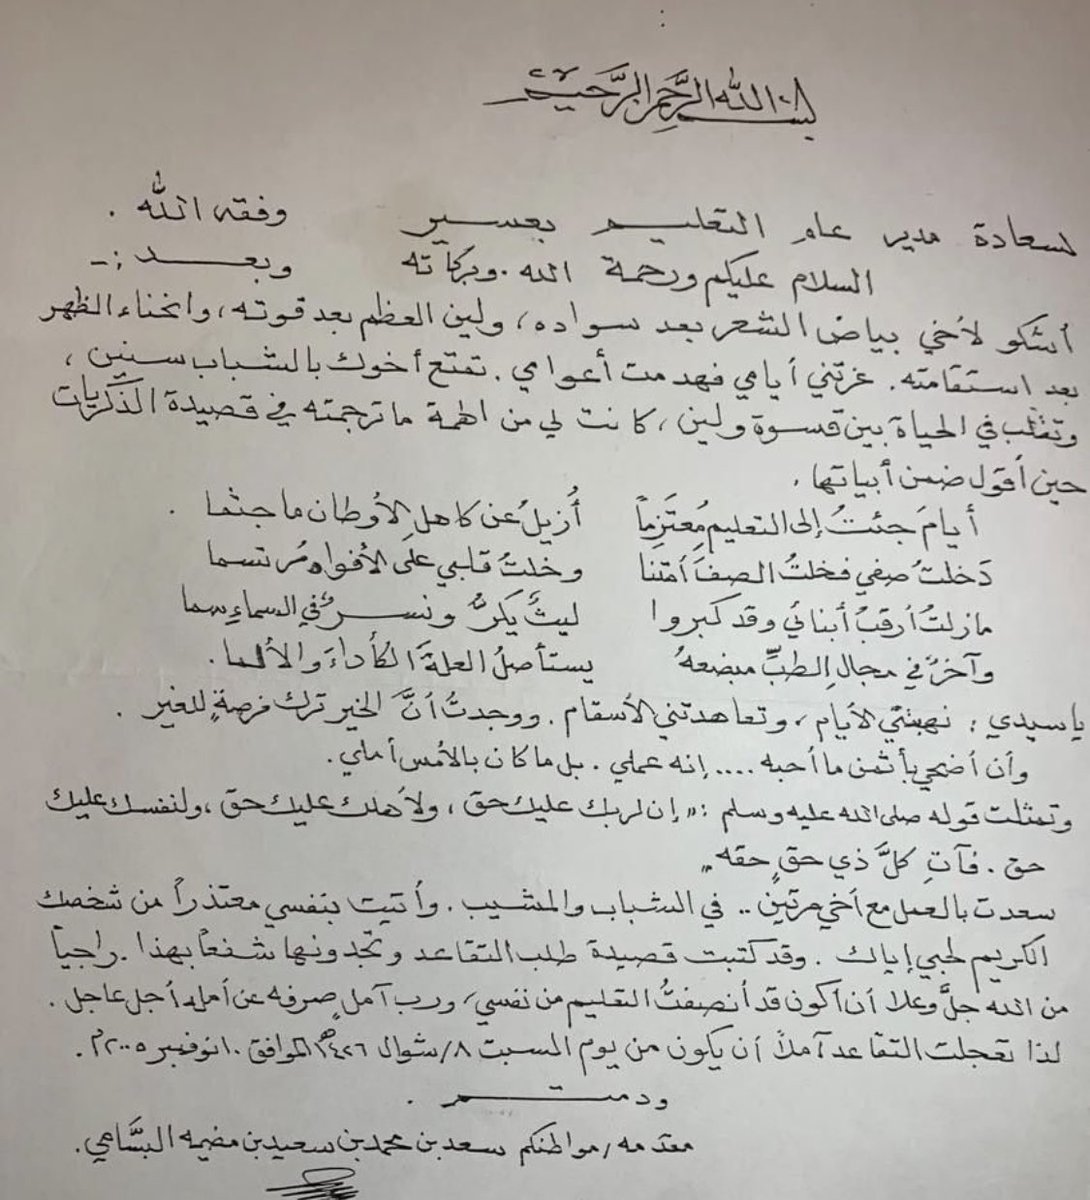 بسم الله الرحمن الرحيم
لسعادة مدير عام التعليم بعسير وفقه الله .
السلام عليكم ورحمة الله وبركاته وبعد :-
أشكو لأخي بياض الشعر بعد سواده، ولين العظم بعد قوته، وانحناء الظهر
بعد استقامته. غرتني أيامي فهدمت أعوامي. تمتع أخوك بالشباب سنين،
وتقلب في الحياة بين قسوة ولين، كانت لي من الهمة ما ترجمته في قصيدة الذكريات
حين أقول ضمن أبياتها.
أيامَ جئتُ إلى التعليم مُعتَزِماً أُزيلُ عن كاهلِ الأوطان ما جثما .
دَخلتُ صفي فخلتُ الصفَ أمتنا وخلتُ قلبي على الأفواه مُرتسما
مازلتُ أرقبُ أبنائي وقد كبروا ليثٌ يكرُّ ونسرٌ في السماءِ سما
وآخرٌ في مجالِ الطبِّ مبضعهُ يستأصلُ العلةَ الكأداءَ والألما.
ياسيدي: نهبتني الأيام، وتعاهدتني الأسقام. ووجدتُ أنَّ الخير ترك فرصةٍ للغير .
وأن أضحي بأثمن ما أحبه .... إنه عملي. بل ما كان بالأمس أملي.
وتمثلت قوله صلى الله عليه وسلم :" إن لربك عليك حق، ولأهلك عليك حق، ولنفسك عليك
حق. فآتِ كلَّ ذي حقٍ حقه"
سعدت بالعمل مع أخي مرتين .. في الشباب والمشيب. وأتيت بنفسي معتذراً من شخصك
الكريم لحبي إياك . وقد كتبت قصيدة طلب التقاعد وتجدونها شفعاً بهذا. راجياً
من الله جلَّ وعلا أن أكون قد أنصفتُ التعليم من نفسي، ورب آملٍ صرفه عن أمله أجل عاجل.
لذا تعجلت التقاعد آملاً أن يكون من يوم السبت ٨/شوال ١٤٢٦هـ الموافق ١٠نوفمبر ٢٠٠٥م.
ودمتم .
مقدمه/مواطنكم سعد بن محمد بن سعيد بن مضيمه البسامي.